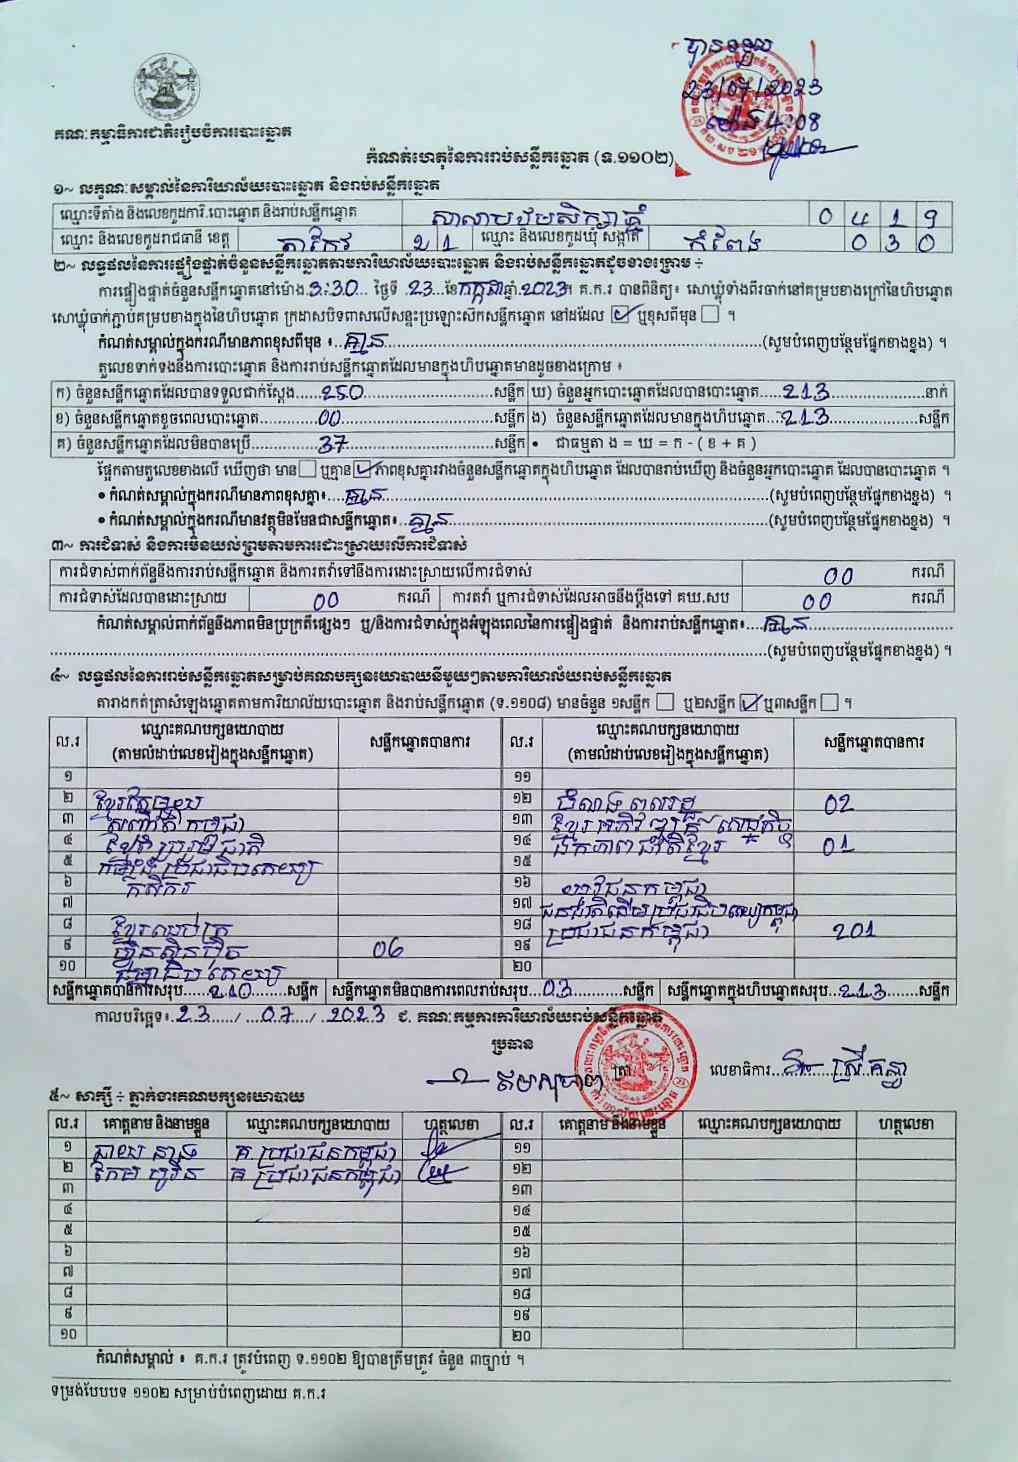 បានទទួល
23/07/2023
ម៉ោង 4:08
គណៈកម្មាធិការជាតិរៀបចំការបោះឆ្នោត
កំណត់ហេតុនៃការរាប់សន្លឹកឆ្នោត (ទ.១១០២)
១~ លក្ខណៈសម្គាល់នៃការិយាល័យបោះឆ្នោត និងរាប់សន្លឹកឆ្នោត
ឈ្មោះទីតាំង និងលេខកូដការិ.បោះឆ្នោត និងរាប់សន្លឹកឆ្នោត សាលាបឋមសិក្សាធ្នុំ 0 4 1 9
ឈ្មោះ និងលេខកូដរាជធានី ខេត្ត តាកែវ 2 1 ឈ្មោះ និងលេខកូដឃុំ សង្កាត់ កំពែង 0 3 0
២~ លទ្ធផលនៃការផ្ទៀងផ្ទាត់ចំនួនសន្លឹកឆ្នោតតាមការិយាល័យបោះឆ្នោត និងរាប់សន្លឹកឆ្នោតដូចខាងក្រោម ៖
ការផ្ទៀងផ្ទាត់ចំនួនសន្លឹកឆ្នោតនៅម៉ោង.3:30... ថ្ងៃទី .23..ខែកក្កដាឆ្នាំ.2023។ គ.ក.រ បានពិនិត្យ៖ សោឃ្លុំទាំងពីរចាក់នៅគម្របខាងក្រៅនៃហិបឆ្នោត
សោឃ្លុំចាក់ភ្ជាប់គម្របខាងក្នុងនៃហិបឆ្នោត ក្រដាសបិទពាសលើសន្ទះប្រឡោះស៊កសន្លឹកឆ្នោត នៅដដែល ☑ ឬខុសពីមុន ☐ ។
កំណត់សម្គាល់ក្នុងករណីមានភាពខុសពីមុន ៖..គ្មាន...(សូមបំពេញបន្ថែមផ្នែកខាងខ្នង) ។
តួលេខទាក់ទងនឹងការបោះឆ្នោត និងការរាប់សន្លឹកឆ្នោតដែលមានក្នុងហិបឆ្នោតមានដូចខាងក្រោម ៖
ក) ចំនួនសន្លឹកឆ្នោតដែលបានទទួលជាក់ស្តែង......250......សន្លឹក ឃ) ចំនួនអ្នកបោះឆ្នោតដែលបានបោះឆ្នោត.....213......នាក់
ខ) ចំនួនសន្លឹកឆ្នោតខូចពេលបោះឆ្នោត......00......សន្លឹក ង) ចំនួនសន្លឹកឆ្នោតដែលមានក្នុងហិបឆ្នោត...213......សន្លឹក
គ) ចំនួនសន្លឹកឆ្នោតដែលមិនបានប្រើ......37......សន្លឹក • ជាធម្មតា ង = ឃ = ក - ( ខ + គ )
ផ្អែកតាមតួលេខខាងលើ ឃើញថា មាន ☐ ឬគ្មាន ☑ ភាពខុសគ្នារវាងចំនួនសន្លឹកឆ្នោតក្នុងហិបឆ្នោត ដែលបានរាប់ឃើញ និងចំនួនអ្នកបោះឆ្នោត ដែលបានបោះឆ្នោត ។
• កំណត់សម្គាល់ក្នុងករណីមានភាពខុសគ្នា៖...គ្មាន......(សូមបំពេញបន្ថែមផ្នែកខាងខ្នង) ។
• កំណត់សម្គាល់ក្នុងករណីមានវត្ថុមិនមែនជាសន្លឹកឆ្នោត៖..គ្មាន......(សូមបំពេញបន្ថែមផ្នែកខាងខ្នង) ។
៣~ ការជំទាស់ និងការមិនយល់ព្រមតាមការដោះស្រាយលើការជំទាស់
ការជំទាស់ពាក់ព័ន្ធនឹងការរាប់សន្លឹកឆ្នោត និងការតវ៉ាទៅនឹងការដោះស្រាយលើការជំទាស់ 00 ករណី
ការជំទាស់ដែលបានដោះស្រាយ 00 ករណី ការតវ៉ា ឬការជំទាស់ដែលអាចនឹងប្តឹងទៅ គឃ.សប 00 ករណី
កំណត់សម្គាល់ពាក់ព័ន្ធនឹងភាពមិនប្រក្រតីផ្សេងៗ ឬ/និងការជំទាស់ក្នុងអំឡុងពេលនៃការផ្ទៀងផ្ទាត់ និងការរាប់សន្លឹកឆ្នោត៖...គ្មាន......
......(សូមបំពេញបន្ថែមផ្នែកខាងខ្នង) ។
៤~ លទ្ធផលនៃការរាប់សន្លឹកឆ្នោតសម្រាប់គណបក្សនយោបាយនីមួយៗតាមការិយាល័យរាប់សន្លឹកឆ្នោត
តារាងកត់ត្រាសំឡេងឆ្នោតតាមការិយាល័យបោះឆ្នោត និងរាប់សន្លឹកឆ្នោត (ទ.១១០៨) មានចំនួន ១សន្លឹក ☐ ឬ២សន្លឹក ☑ ឬ៣សន្លឹក ☐ ។
ល.រ ឈ្មោះគណបក្សនយោបាយ (តាមលំដាប់លេខរៀងក្នុងសន្លឹកឆ្នោត) សន្លឹកឆ្នោតបានការ ល.រ ឈ្មោះគណបក្សនយោបាយ (តាមលំដាប់លេខរៀងក្នុងសន្លឹកឆ្នោត) សន្លឹកឆ្នោតបានការ
១ ១១
២ ខ្មែរតែមួយ ១២ ជំលាង ពលរដ្ឋ 02
៣ សញ្ជាតិកម្ពុជា ១៣ ខ្មែរអភិវឌ្ឍន៍សេដ្ឋកិច្ច
៤ ខ្មែររួបរួមជាតិ ១៤ ឯកភាពជាតិខ្មែរ 01
៥ កម្លាំងប្រជាធិបតេយ្យ ១៥
៦ កសិករ ១៦ យុវជនកម្ពុជា
៧ ១៧ ជនជាតិដើមប្រជាធិបតេយ្យកម្ពុជា
៨ ខ្មែរឈប់ក្រ ១៨ ប្រជាជនកម្ពុជា 201
៩ ហ៊្វុនស៊ិនប៉ិច 06 ១៩
១០ ធម្មាធិបតេយ្យ ២០
សន្លឹកឆ្នោតបានការសរុប......210......សន្លឹក សន្លឹកឆ្នោតមិនបានការពេលរាប់សរុប...03......សន្លឹក សន្លឹកឆ្នោតក្នុងហិបឆ្នោតសរុប..213......សន្លឹក
កាលបរិច្ឆេទ៖.23..../...07..../..2023 ជ. គណៈកម្មការការិយាល័យរាប់សន្លឹកឆ្នោត
ប្រធាន
ត្រា លេខាធិការ...... ស្រីគន្ធា
៥~ សាក្សី ៖ ភ្នាក់ងារគណបក្សនយោបាយ
ល.រ គោត្តនាម និងនាមខ្លួន ឈ្មោះគណបក្សនយោបាយ ហត្ថលេខា ល.រ គោត្តនាម និងនាមខ្លួន ឈ្មោះគណបក្សនយោបាយ ហត្ថលេខា
១ គ ប្រជាជនកម្ពុជា ១១
២ កែម គ ប្រជាជនកម្ពុជា ១២
៣ ១៣
៤ ១៤
៥ ១៥
៦ ១៦
៧ ១៧
៨ ១៨
៩ ១៩
១០ ២០
កំណត់សម្គាល់ ៖ គ.ក.រ ត្រូវបំពេញ ទ.១១០២ ឱ្យបានត្រឹមត្រូវ ចំនួន ៣ច្បាប់ ។
ទម្រង់បែបបទ ១១០២ សម្រាប់បំពេញដោយ គ.ក.រ